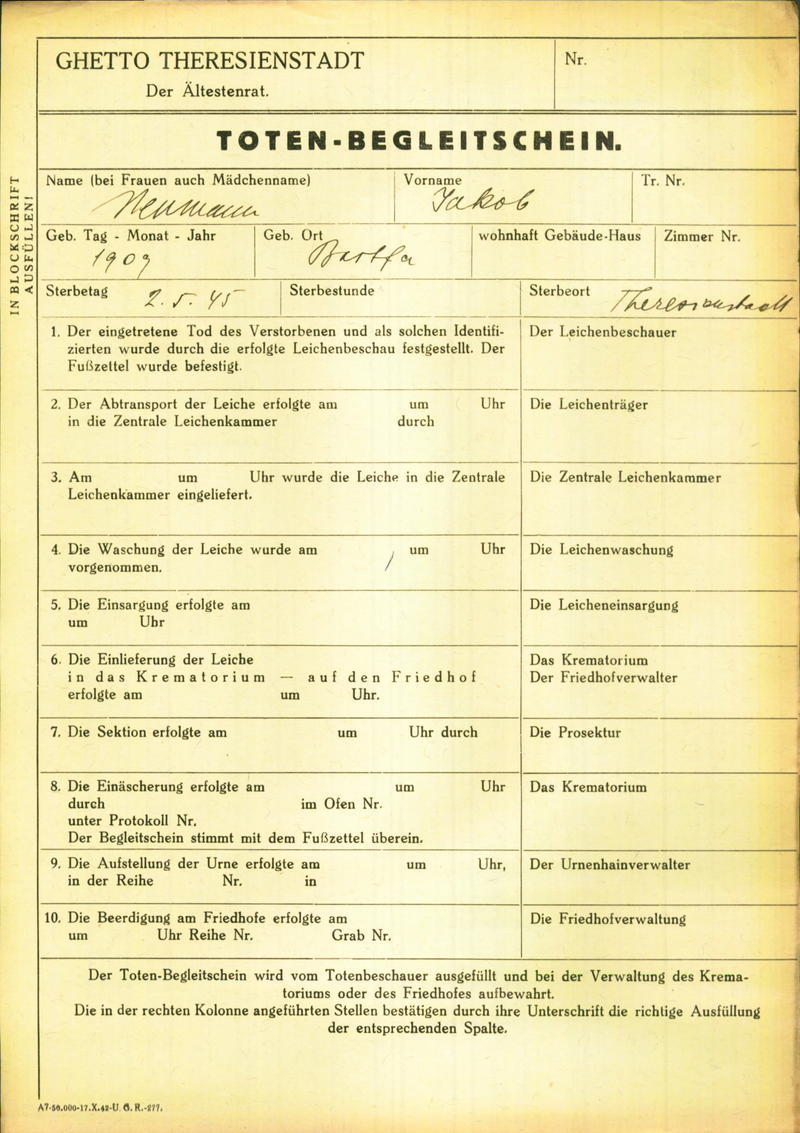 GHETTO THERESIENSTADT
Der Ältestenrat.
Nr.
TOTEN-BEGLEITSCHEIN.
IN BLOCKSCHRIFT
AUSFÜLLEN!
Name (bei Frauen auch Mädchenname)
Neumann
Vorname
Jakob
Tr. Nr.
Geb. Tag - Monat - Jahr
1909
Geb. Ort
Bartfa
wohnhaft Gebäude-Haus
Zimmer Nr.
Sterbetag 2.5.45
Sterbestunde
Sterbeort Theresienstadt
1. Der eingetretene Tod des Verstorbenen und als solchen Identifi-
zierten wurde durch die erfolgte Leichenbeschau festgestellt. Der
Fußzettel wurde befestigt.
Der Leichenbeschauer
2. Der Abtransport der Leiche erfolgte am um Uhr
in die Zentrale Leichenkammer durch
Die Leichenträger
3. Am um Uhr wurde die Leiche in die Zentrale
Leichenkammer eingeliefert.
Die Zentrale Leichenkammer
4. Die Waschung der Leiche wurde am um Uhr
vorgenommen.
Die Leichenwaschung
5. Die Einsargung erfolgte am
um Uhr
Die Leicheneinsargung
6. Die Einlieferung der Leiche
in das Krematorium — auf den Friedhof
erfolgte am um Uhr.
Das Krematorium
Der Friedhofverwalter
7. Die Sektion erfolgte am um Uhr durch
Die Prosektur
8. Die Einäscherung erfolgte am um Uhr
durch im Ofen Nr.
unter Protokoll Nr.
Der Begleitschein stimmt mit dem Fußzettel überein.
Das Krematorium
9. Die Aufstellung der Urne erfolgte am um Uhr,
in der Reihe Nr. in
Der Urnenhainverwalter
10. Die Beerdigung am Friedhofe erfolgte am
um Uhr Reihe Nr. Grab Nr.
Die Friedhofverwaltung
Der Toten-Begleitschein wird vom Totenbeschauer ausgefüllt und bei der Verwaltung des Krema-
toriums oder des Friedhofes aufbewahrt.
Die in der rechten Kolonne angeführten Stellen bestätigen durch ihre Unterschrift die richtige Ausfüllung
der entsprechenden Spalte.
A7-50.000-17.X.42-U. G. R.-277.